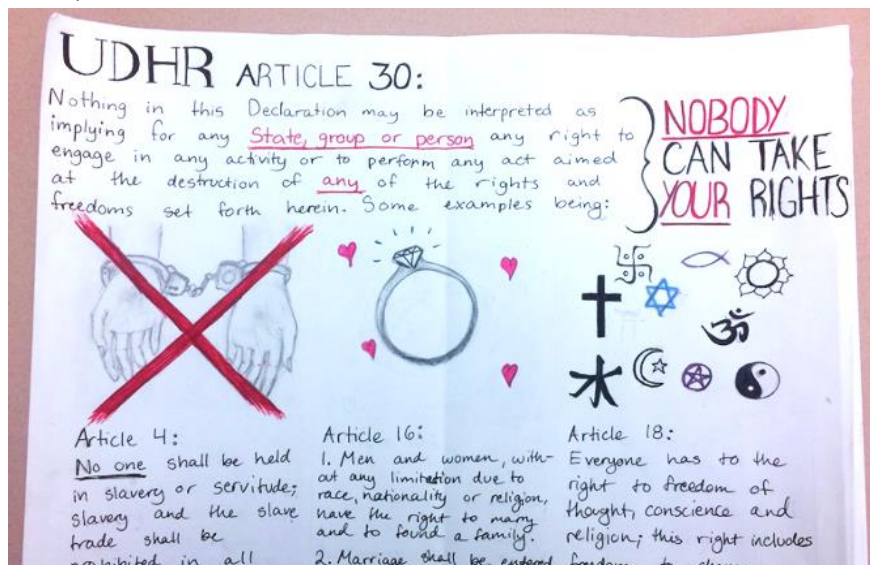 UDHR ARTICLE 30:
Nothing in this Declaration may be interpreted as
implying for any State, group or person any right to
engage in any activity or to perform any act aimed
at the destruction of any of the rights and
freedoms set forth herein. Some examples being:
NOBODY
CAN TAKE
YOUR RIGHTS
Article 4:
No one shall be held
in slavery or servitude;
slavery and the slave
trade shall be
prohibited in all
Article 16:
1. Men and women, with-
out any limitation due to
race, nationality or religion,
have the right to marry
and to found a family.
2. Marriage shall be entered
Article 18:
Everyone has to the
right to freedom of
thought, conscience and
religion; this right includes
freedom to change